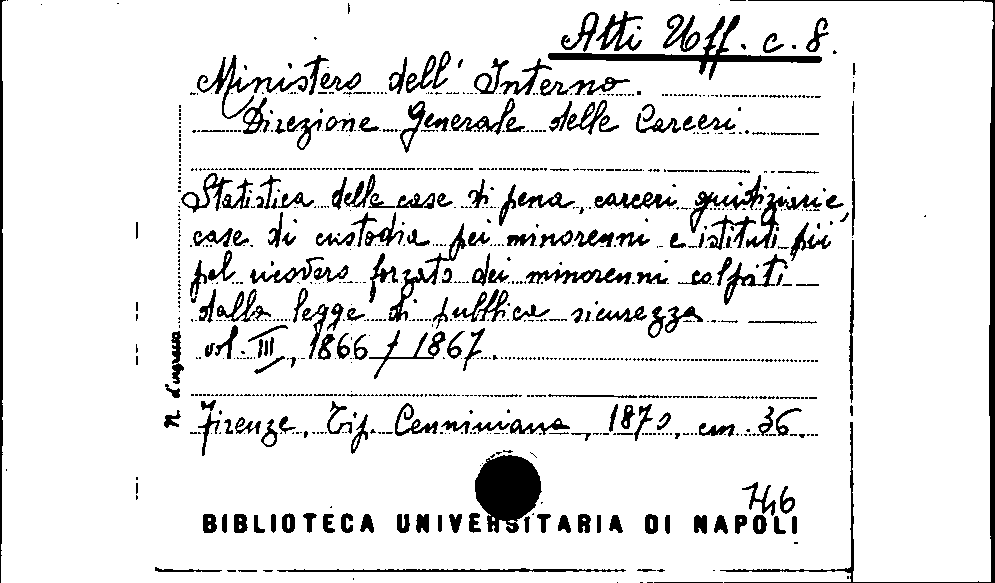 Atti Uff. c. 8.
Ministero dell' Interno.
Direzione Generale delle Carceri.
Statistica delle case di pena, carceri giudiziarie,
case di custodia pei minorenni e istituti pii
pel ricovero forzato dei minorenni colpiti
dalla legge di pubblica sicurezza
vol. III, 1866 / 1867.
N. d'ingresso
Firenze, Tip. Cenniniana, 1870, cm. 36.
746
BIBLIOTECA UNIVERSITARIA DI NAPOLI